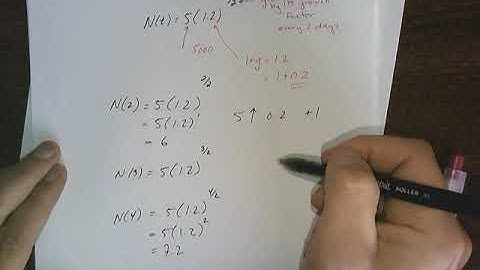 N(t) = 5(1.2)
its growth
factor
every 2 days
5000
1+g = 1.2
= 1+0.2
N(2) = 5(1.2)^2/2
= 5(1.2)^1
= 6
5 ↑ 0.2 +1
N(3) = 5(1.2)^3/2
N(4) = 5(1.2)^4/2
= 5(1.2)^2
= 7.2
ROLLER